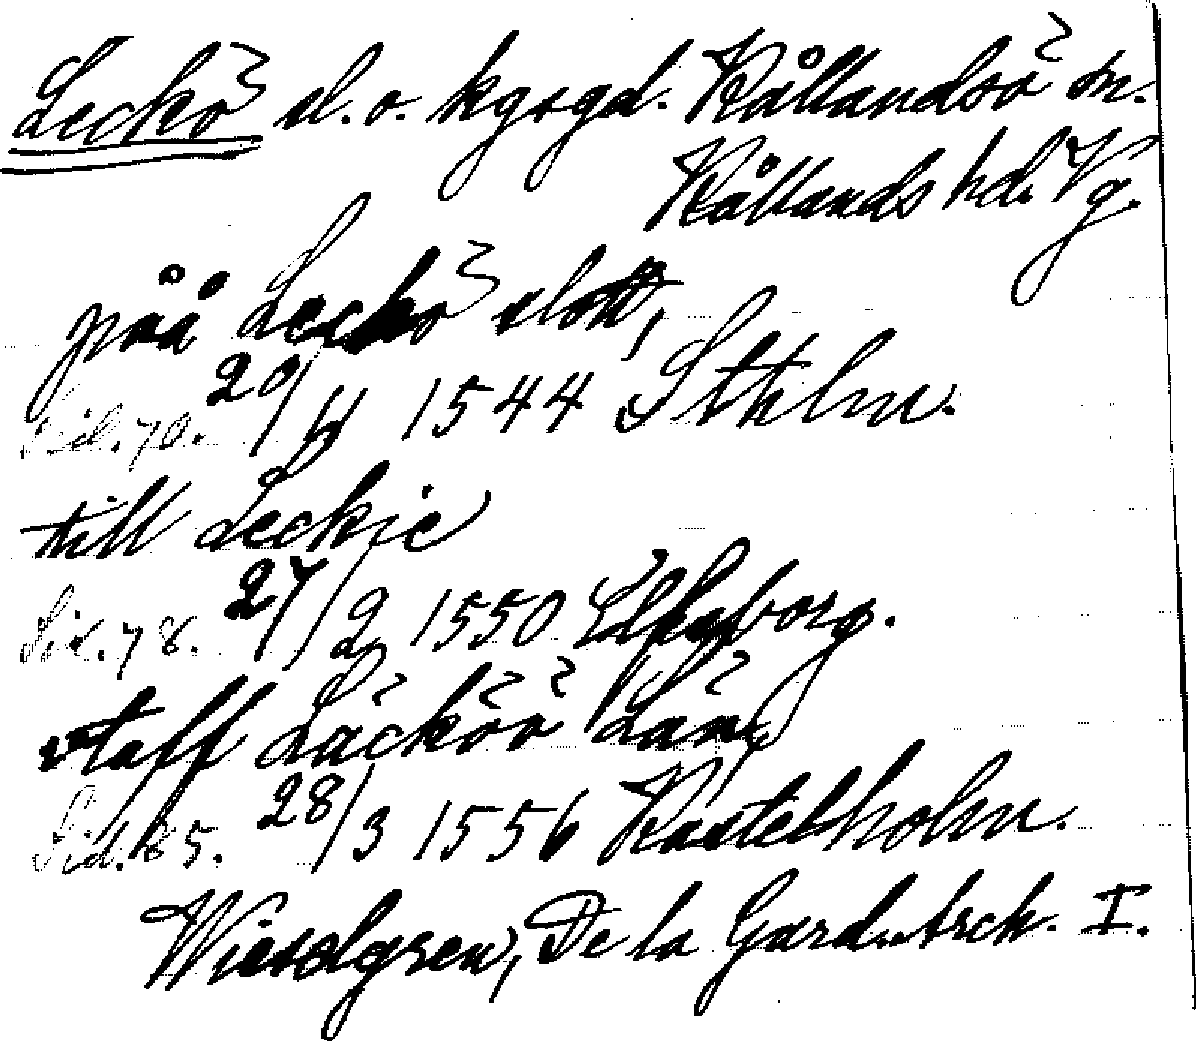 Leckö sl. o. kgsgd. Kållandsö sn.
Kållands hd. Vg.
på å Leckö slott,
Sid. 70. 20/4 1544 Sthlm.
till Leckie
Sid. 78. 27/2 1550 Elfsborg.
vtaff Läcköö Län,
Sid. 85. 28/3 1556 Kastelholm.
Wieselgren, De la Gard. Arch. I.